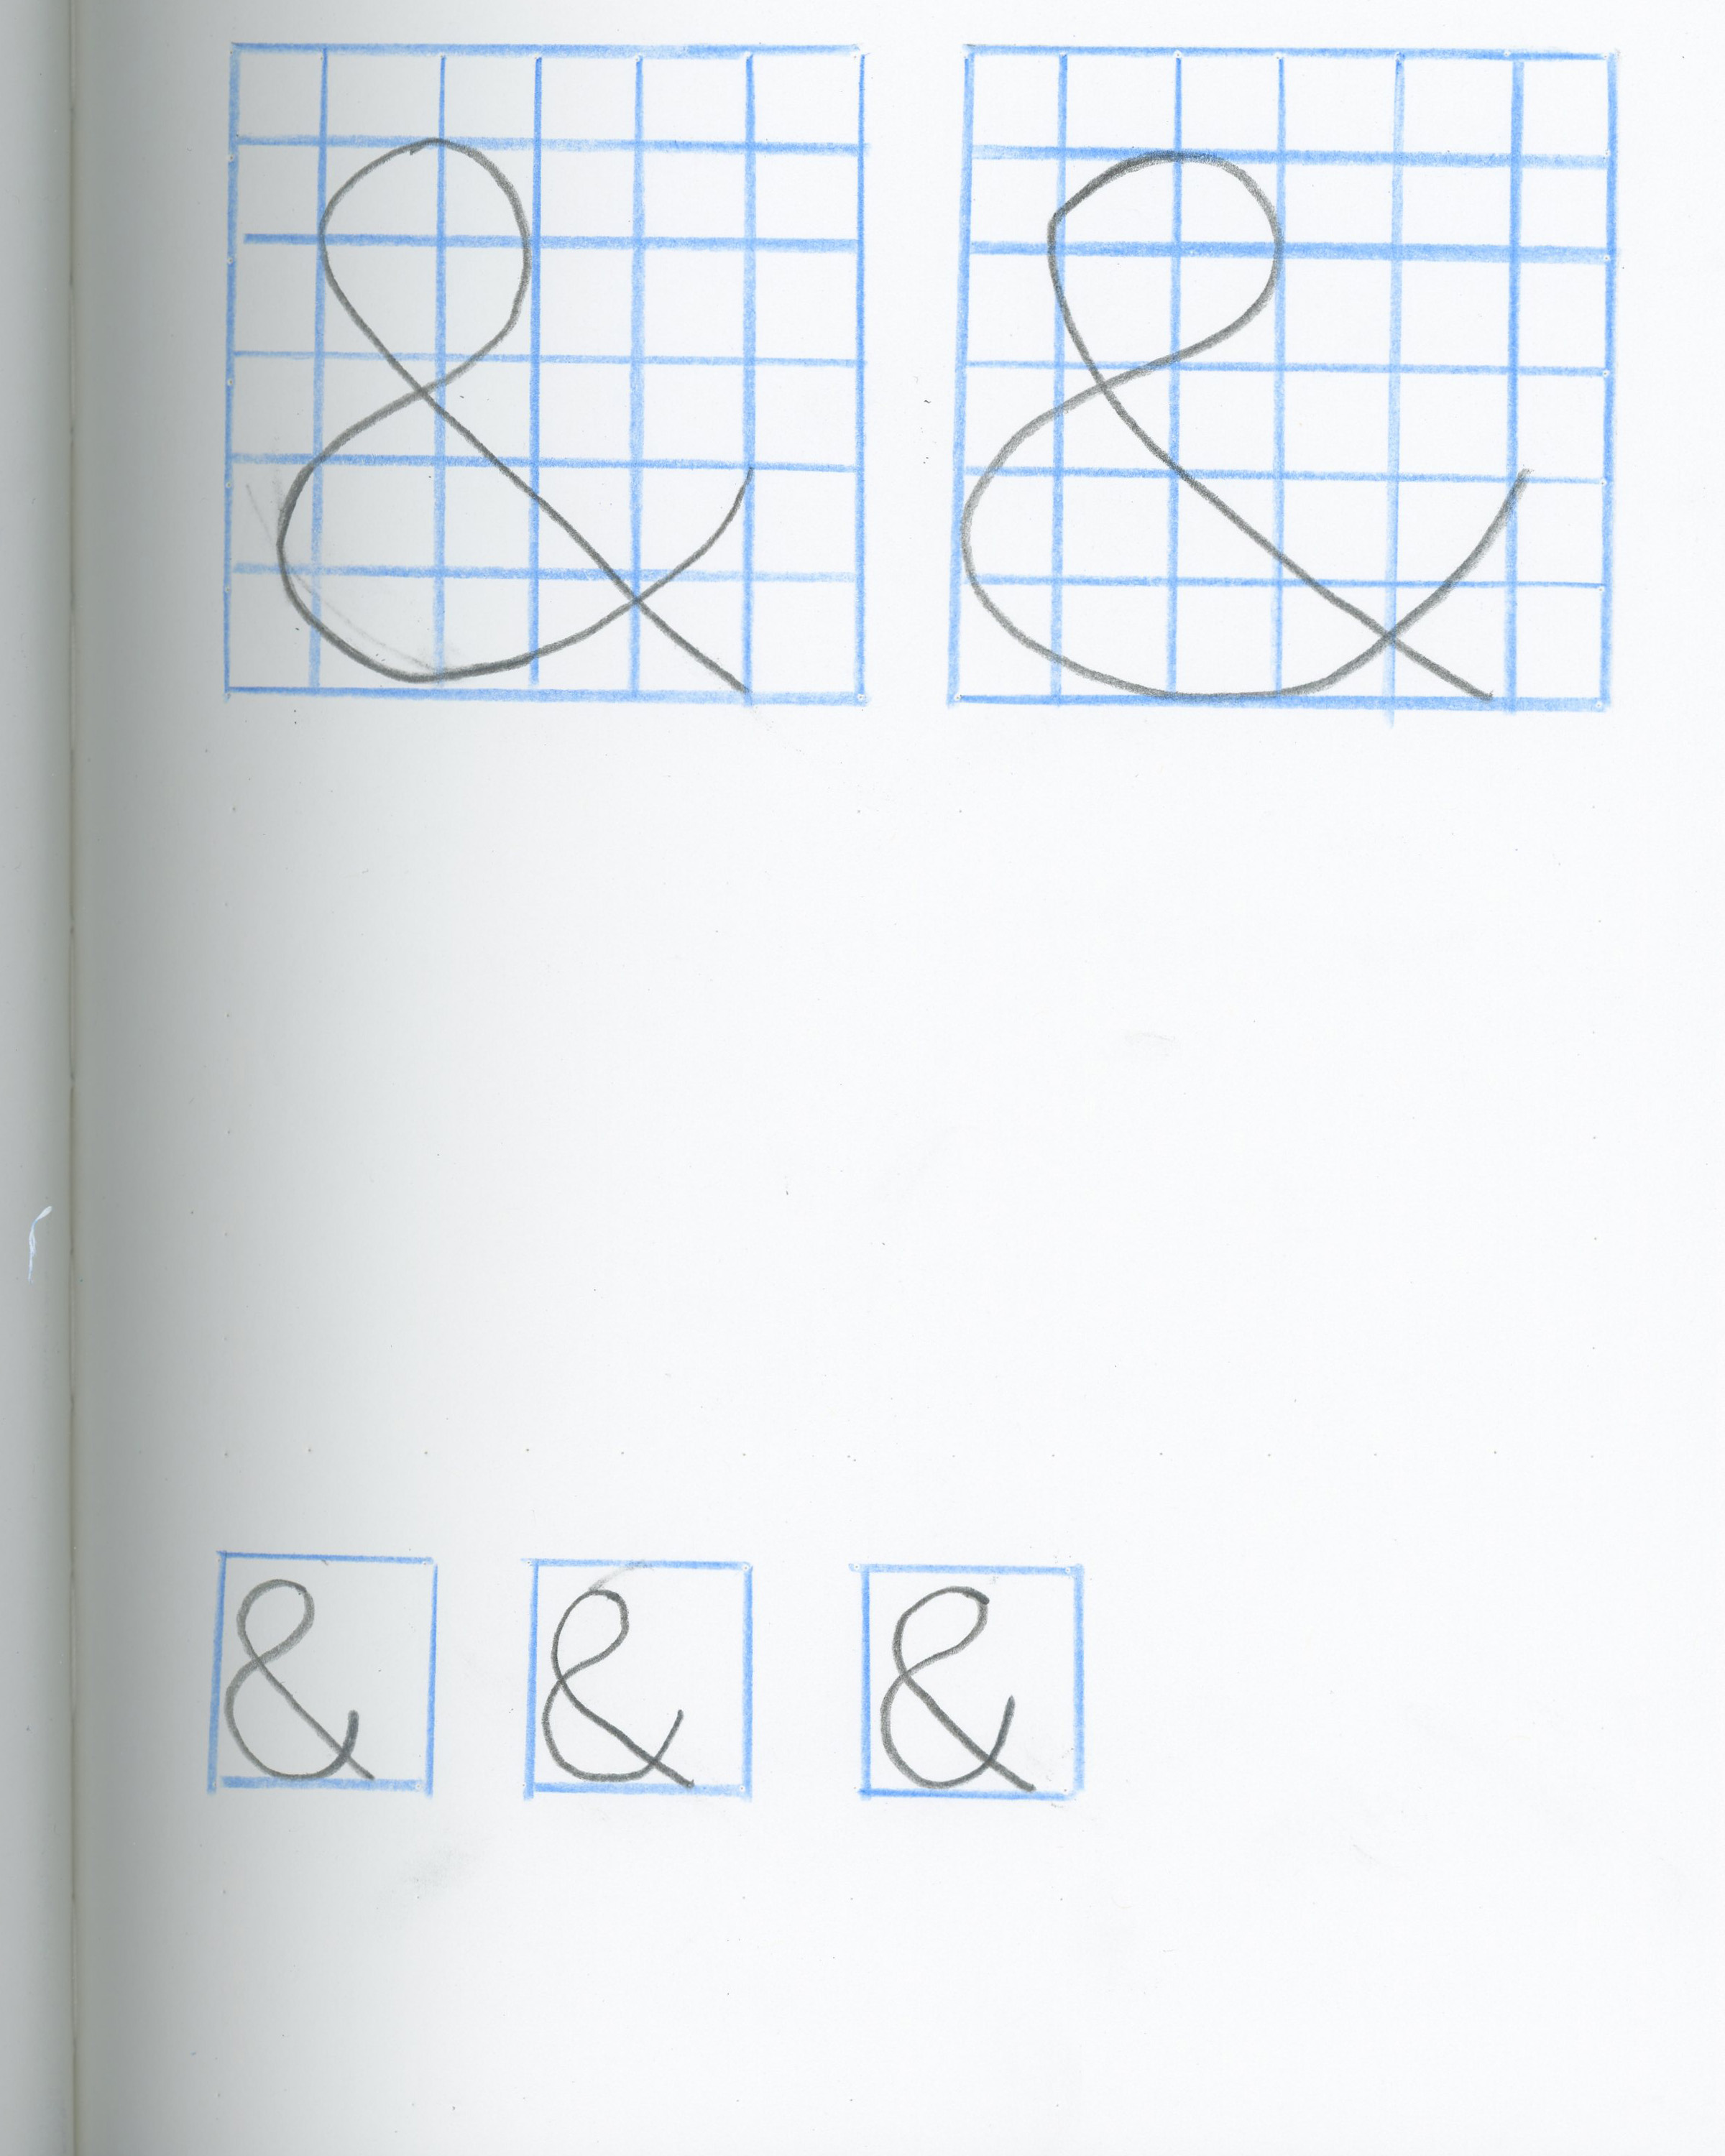 & &
& & &